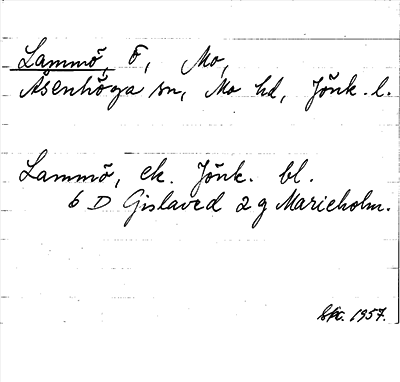 Lammö, ö, Mo,
Åsenhöga sn, Mo hd, Jönk. l.
Lammö, ek. Jönk. bl.
6 D Gislaved 2 g Marieholm.
Skr. 1957.